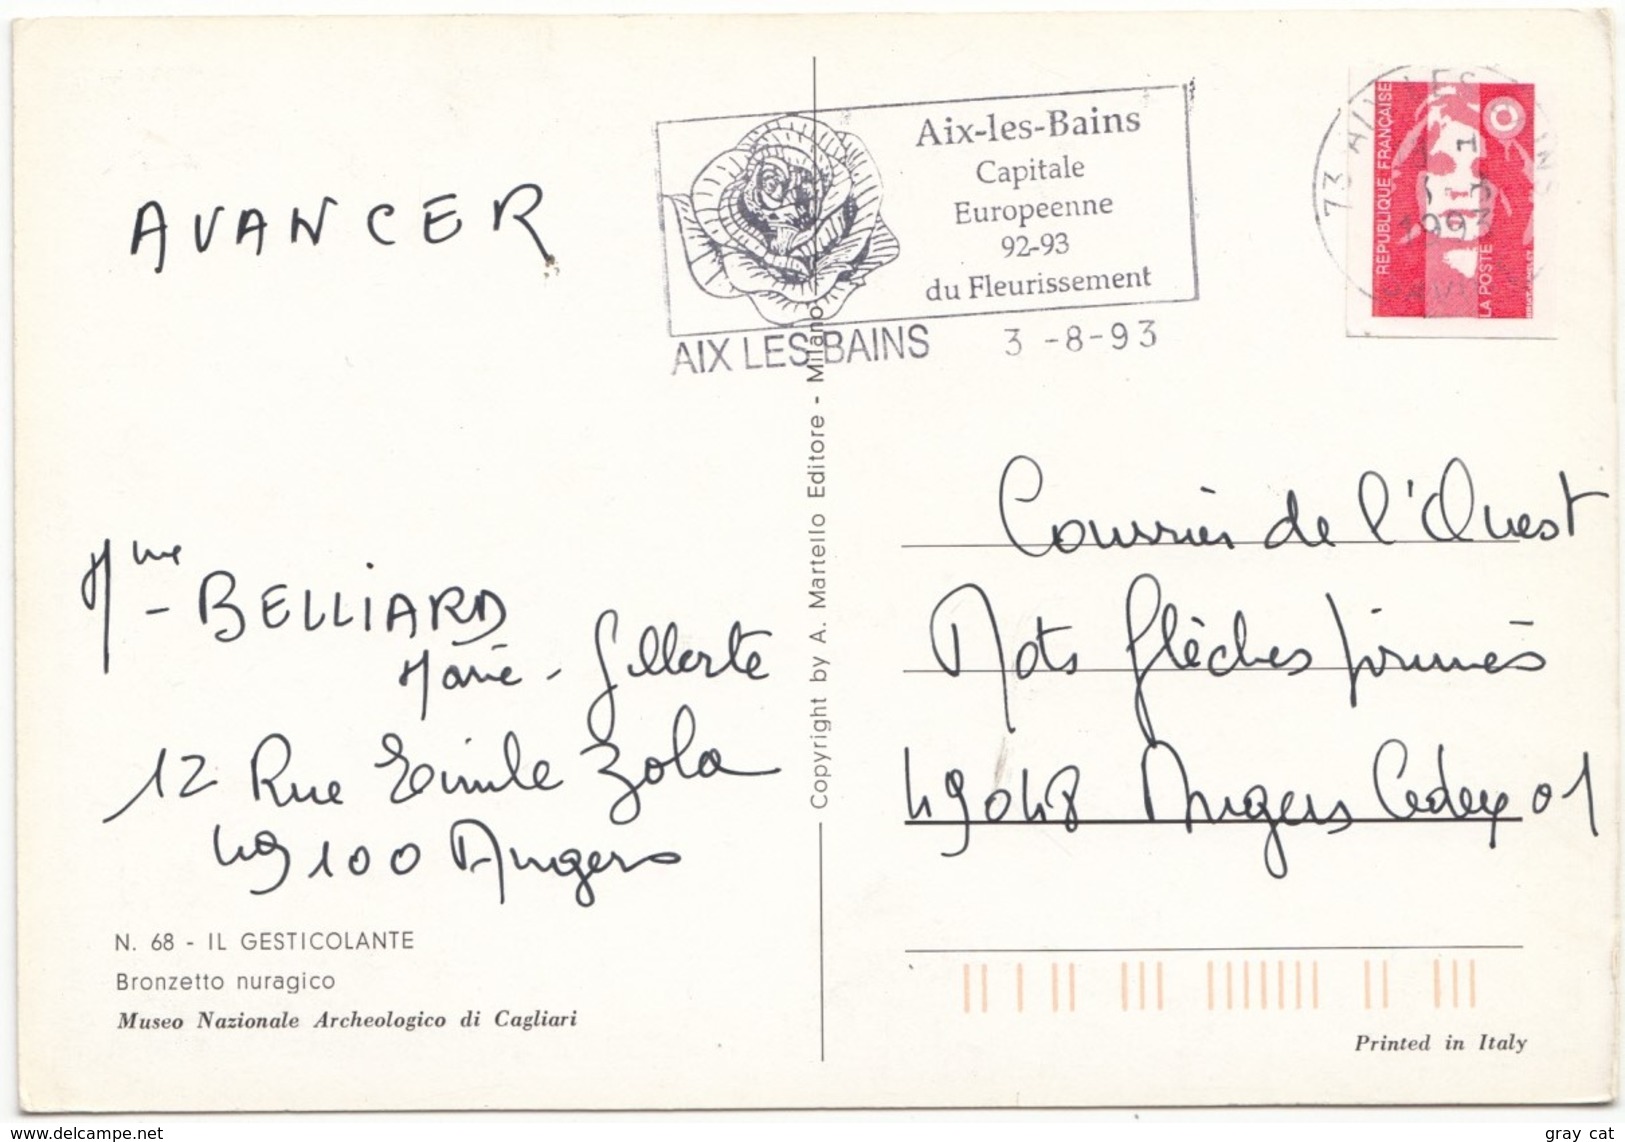 AVANCER
Mme BELLIARD
Marie-Gilberte
12 Rue Emile Zola
49100 Angers
N. 68 - IL GESTICOLANTE
Bronzetto nuragico
Museo Nazionale Archeologico di Cagliari
Copyright by A. Martello Editore - Milano
Aix-les-Bains
Capitale
Europeenne
92-93
du Fleurissement
AIX LES BAINS 3-8-93
REPUBLIQUE FRANÇAISE
LA POSTE
1993
Courrier de l'Ouest
Mots fléches primés
49048 Angers Cedex 01
Printed in Italy
www.delcampe.net
gray cat